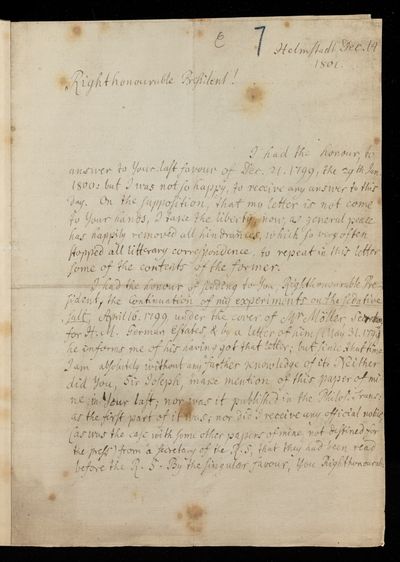 7
Helmstadt Dec. 14
1801.
Righthonourable President!
I had the honour, to
answer to Your last favour of Dec. 21. 1799, the 29th Jan.
1800: but I was not so happy, to receive any answer to this
day. On the supposition, that my letter is not come
to Your hands, I take the liberty, now, as general peace
has happily removed all hindrances, which so very often
stopped all litterary correspondence, to repeat in this letter
some of the contents of the former.
I had the honour of sending to You, Righthonourable Pre-
sident, the continuation of my experiments on the sedative
salt, April 16. 1799 under the cover of Mr Möller Secretary
for H. M. German Estates, & by a letter of him, May 31. 1799
he informs me of his having got that letter; but since that time
I am absolutely without any further knowledge of it. Neither
did You, Sir Joseph, make mention of this paper of mi-
ne in Your last, nor was it published in the Philos. Trans:
as the first part of it was; nor did I receive any official notice
(as was the case with some other papers of mine, not destined for
the press) from a secretary of the R. S, that they had been read
before the R. S. By the singular favour, You Righthonourable